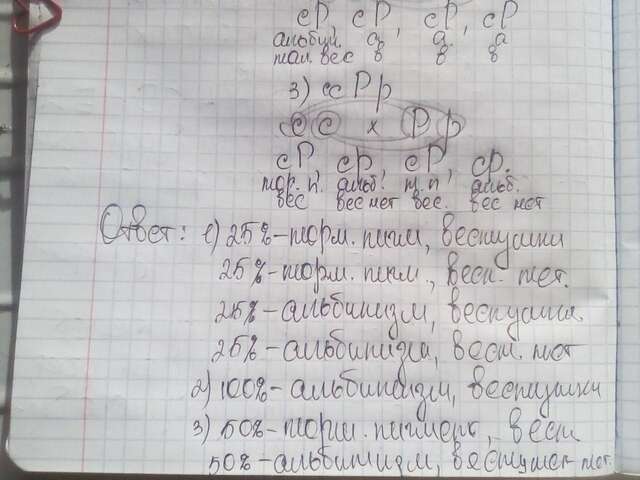 сР, сР, сР, сР
альбин. а. а. а
нал. вес в в в
3) ссРр
с с х Р р
сР, ср, сР, ср.
нор. п. альб. н. п. альб.
вес вес нет вес. вес нет
Ответ: 1) 25%-норм. пигм, веснушки
25%-норм. пигм., весн. нет.
25%-альбинизм, веснушки.
25%-альбинизм, весн. нет
2) 100%-альбинизм, веснушки
3) 50%-норм. пигмент, весн.
50%-альбинизм, веснушек нет.